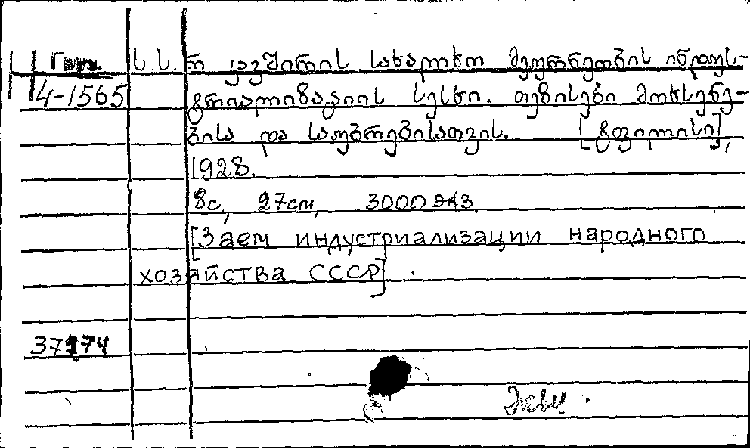 Груз. ს.ს.რ. კავშირის სახალხო მეურნეობის ინდუს-
4-1565 ტრიალიზაციის სესხი. თეზისები მოხსენე-
ბისა და საუბრებისათვის. [ტფილისი],
1928.
8с, 27см, 3000 экз.
[Заем индустриализации народного
хозяйства СССР].
37174